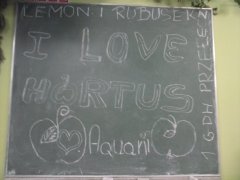 LEMON I RUBUSEK
I LOVE
HORTUS
Aquani
1 GDH